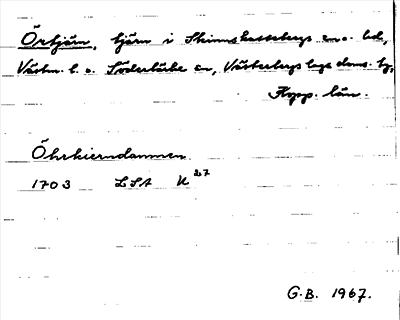 Örtjärn, tjärn i Skinnskattebergs sn o. bd,
Västm. l. o. Söderbärke sn, Västerbergslags doms. tg,
Kopp. län.
Öhrkierndammen
1703 LSA U 27
G.B. 1967.